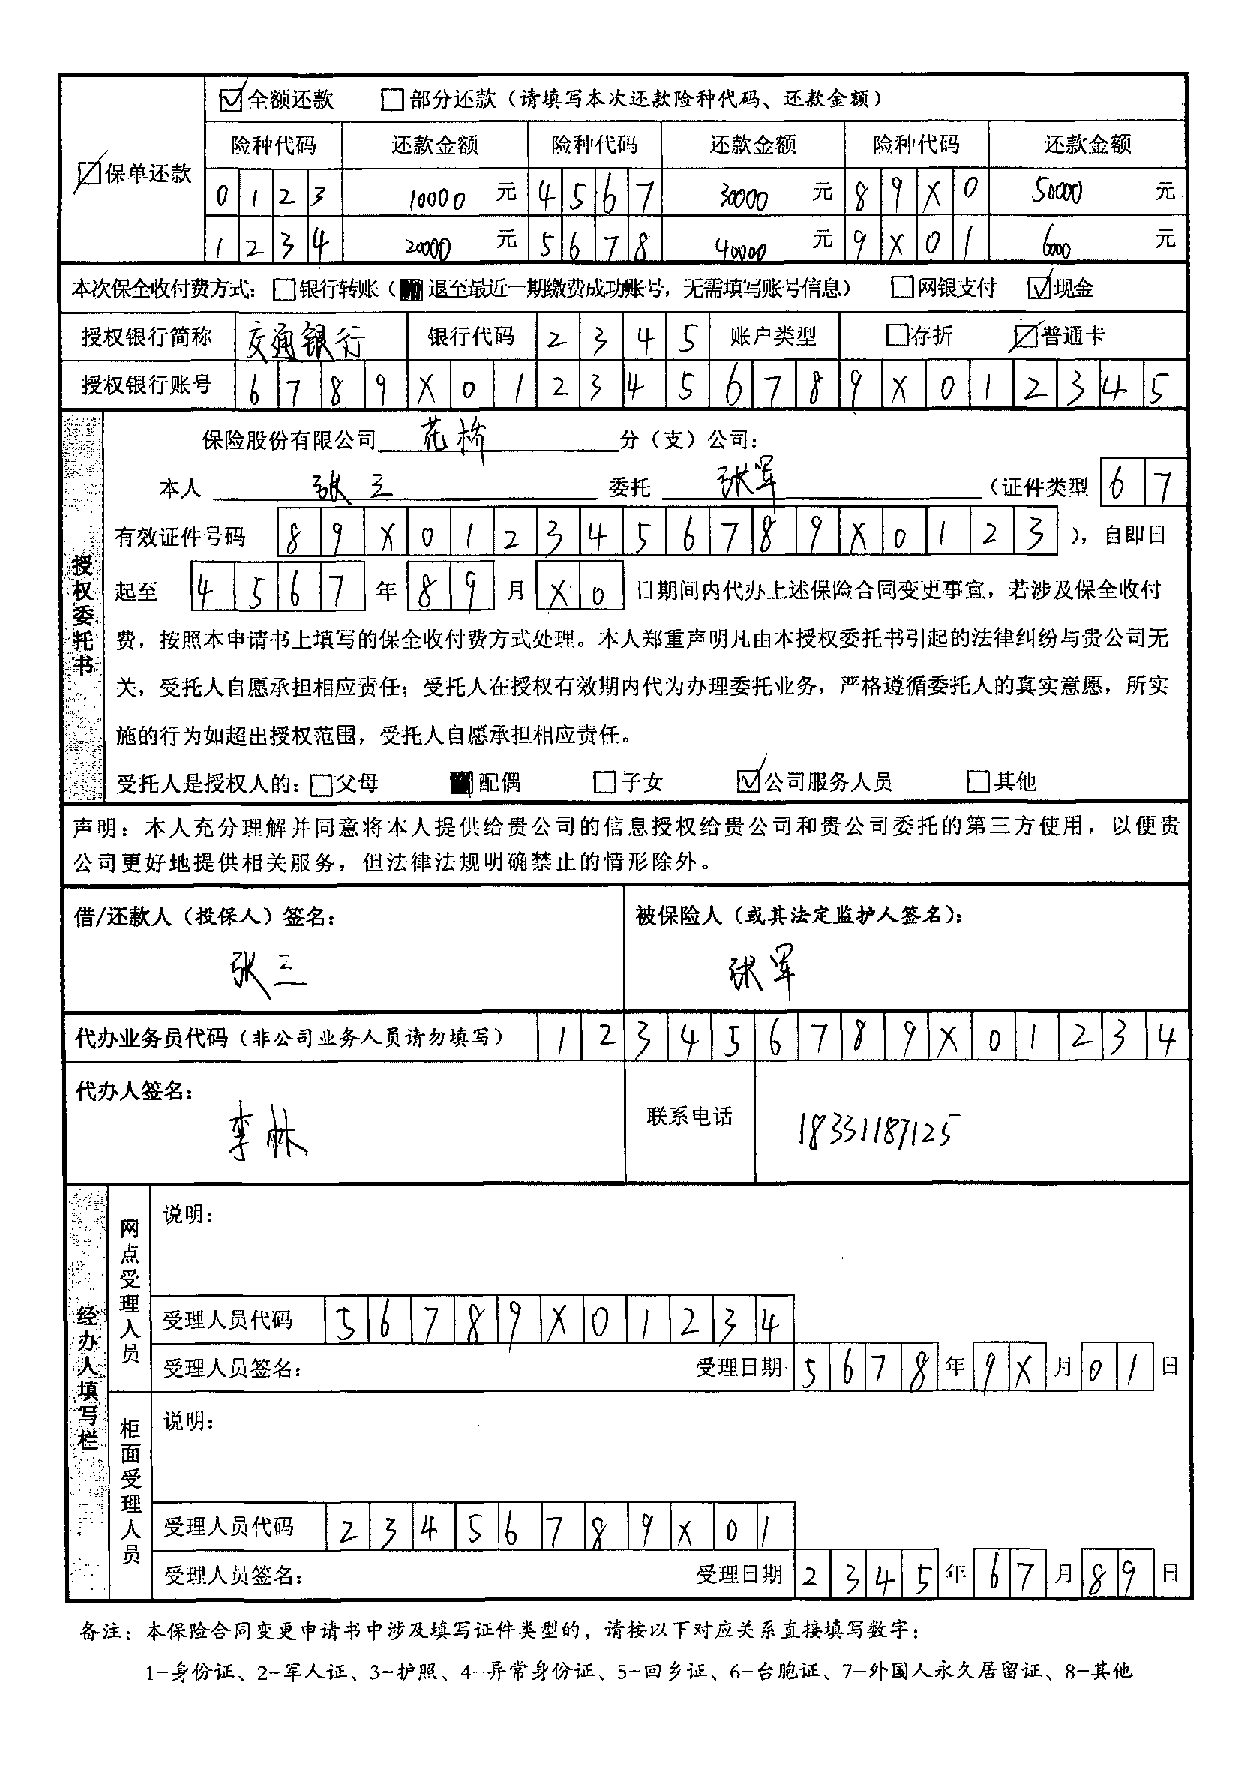 ☑全额还款 □部分还款（请填写本次还款险种代码、还款金额）
险种代码 还款金额 险种代码 还款金额 险种代码 还款金额
☑保单还款
0123 10000 元 4567 30000 元 89X0 50000 元
1234 20000 元 5678 40000 元 9X01 6000 元
本次保全收付费方式：□银行转账（■退至最近一期缴费成功账号，无需填写账号信息） □网银支付 ☑现金
授权银行简称 交通银行 银行代码 2345 账户类型 □存折 ☑普通卡
授权银行账号 6789X0123456789X012345
保险股份有限公司 花桥 分（支）公司：
本人 张三 委托 张军 （证件类型 67
有效证件号码 89X0123456789X0123 ），自即日
起至 4567 年 89 月 X0 日期间内代办上述保险合同变更事宜，若涉及保全收付
费，按照本申请书上填写的保全收付费方式处理。本人郑重声明凡由本授权委托书引起的法律纠纷与贵公司无
关，受托人自愿承担相应责任；受托人在授权有效期内代为办理委托业务，严格遵循委托人的真实意愿，所实
施的行为如超出授权范围，受托人自愿承担相应责任。
受托人是授权人的：□父母 ■配偶 □子女 ☑公司服务人员 □其他
授权委托书
声明：本人充分理解并同意将本人提供给贵公司的信息授权给贵公司和贵公司委托的第三方使用，以便贵
公司更好地提供相关服务，但法律法规明确禁止的情形除外。
借/还款人（投保人）签名： 被保险人（或其法定监护人签名）：
张三 张军
代办业务员代码（非公司业务人员请勿填写） 123456789X01234
代办人签名：
李林 联系电话 18331187125
经办人填写栏
网点受理人员
说明：
受理人员代码 56789X01234
受理人员签名： 受理日期 5678 年 9X 月 01 日
柜面受理人员
说明：
受理人员代码 23456789X01
受理人员签名： 受理日期 2345 年 67 月 89 日
备注：本保险合同变更申请书中涉及填写证件类型的，请按以下对应关系直接填写数字：
1-身份证、2-军人证、3-护照、4-异常身份证、5-回乡证、6-台胞证、7-外国人永久居留证、8-其他